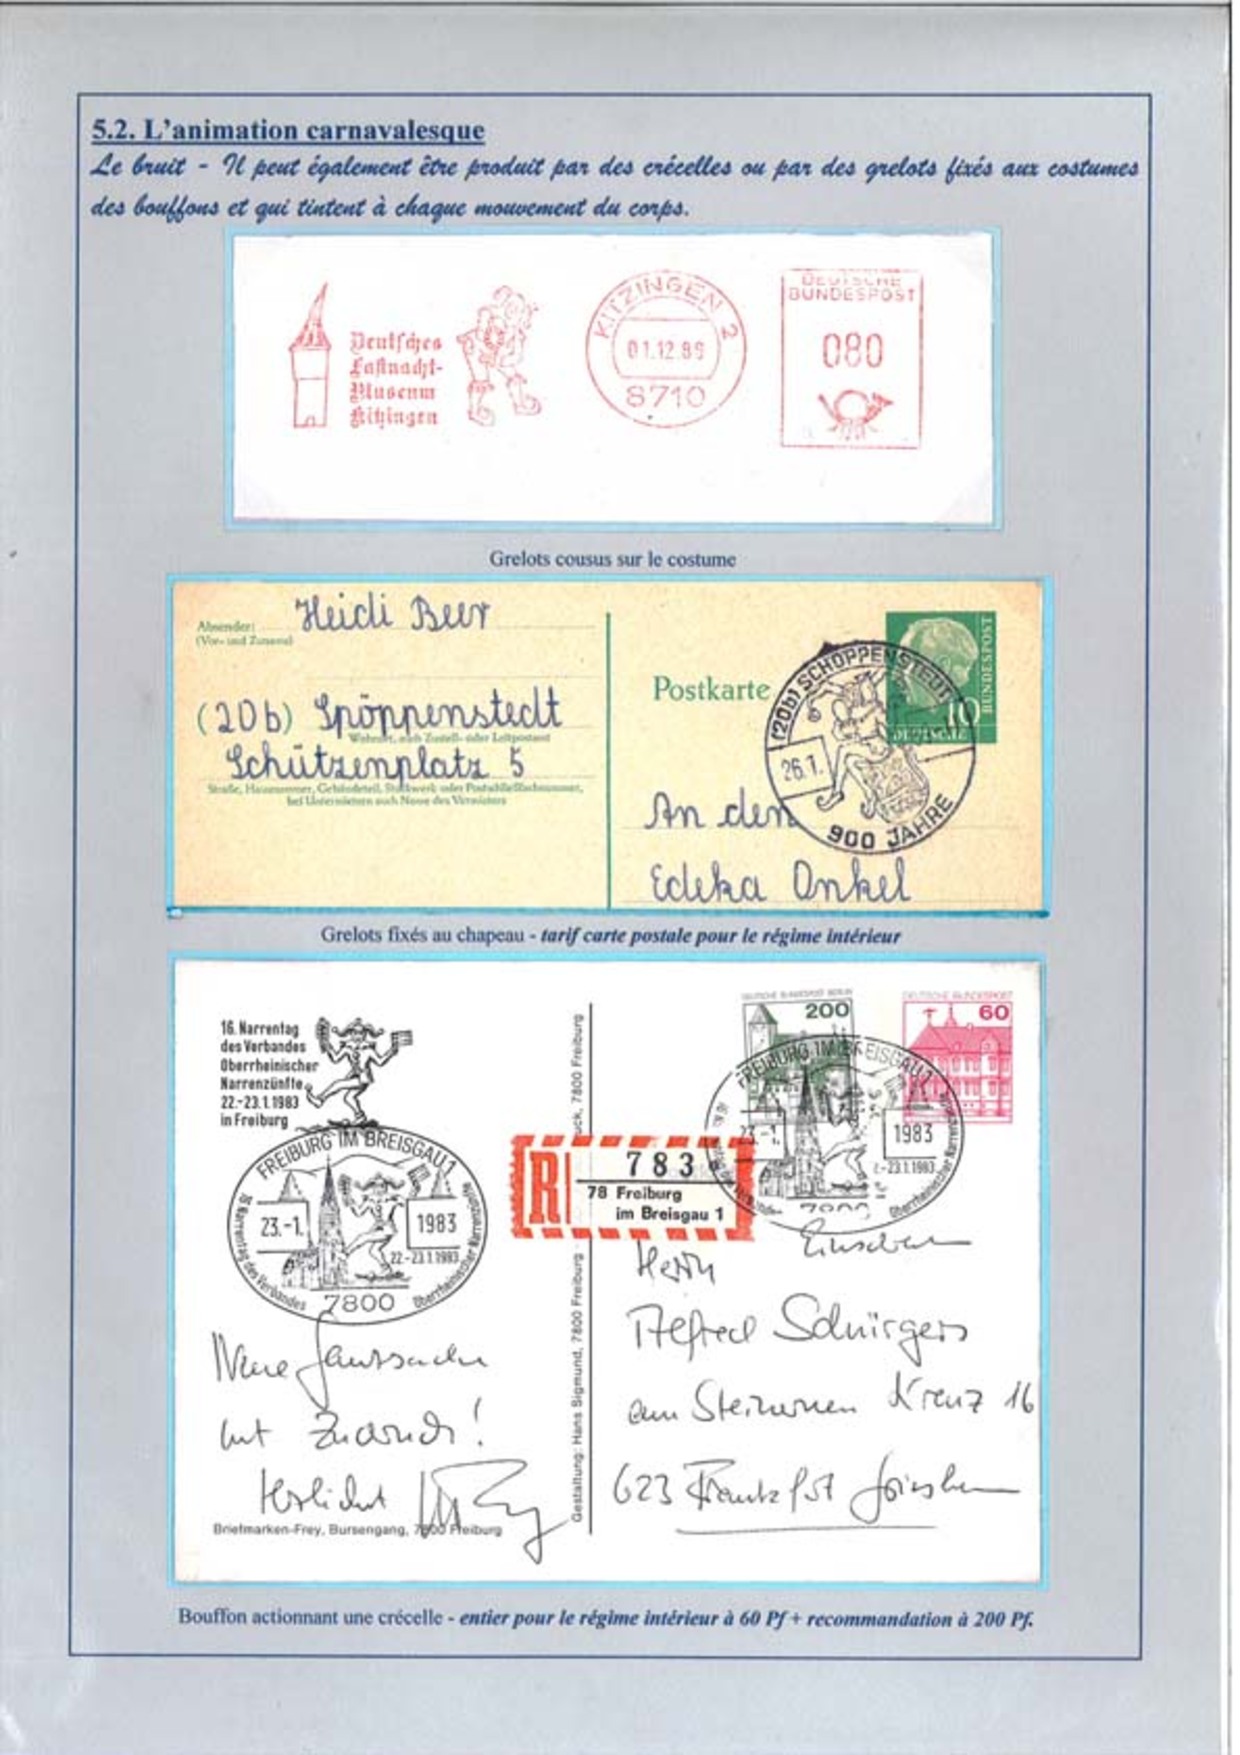 5.2. L'animation carnavalesque
Le bruit - Il peut également être produit par des crécelles ou par des grelots fixés aux costumes
des bouffons et qui tintent à chaque mouvement du corps.
Deutsches
Fastnacht-
Museum
Kitzingen
KITZINGEN 2
01.12.89
8710
DEUTSCHE
BUNDESPOST
080
Grelots cousus sur le costume
Absender: Heidi Beer
(Vor- und Zuname)
(20b) Spöppenstedt
Wohnort, auch Zustell- oder Leitpostamt
Schützenplatz 5
Straße, Hausnummer, Gebäudeteil, Stockwerk oder Postschließfachnummer,
bei Untermietern auch Name des Vermieters
Postkarte
(20b) SCHÖPPENSTEDT
26.1.
900 JAHRE
10
DEUTSCHE
BUNDESPOST
An den
Edeka Onkel
Grelots fixés au chapeau - tarif carte postale pour le régime intérieur
16. Narrentag
des Verbandes
Oberrheinischer
Narrenzünfte
22.-23.1.1983
in Freiburg
FREIBURG IM BREISGAU 1
23.-1.
1983
22.-23.1.1983
16 Narrentag des Verbandes
Oberrheinischer Narrenzünfte
7800
DEUTSCHE BUNDESPOST BERLIN
200
DEUTSCHE BUNDESPOST
60
FREIBURG IM BREISGAU 1
23.-1.
1983
-23.1.1983
Oberrheinischer Narrenzünfte
7800
R
783
78 Freiburg
im Breisgau 1
Gestaltung: Hans Sigmund, 7800 Freiburg
7800 Freiburg
Einschreiben
Herrn
Alfred Schürgers
am Steinernen Kreuz 16
623 Frankfst Griesheim
Neue
mut
Herzlichst
Briefmarken-Frey, Bursengang, 7800 Freiburg
Bouffon actionnant une crécelle - entier pour le régime intérieur à 60 Pf + recommandation à 200 Pf.